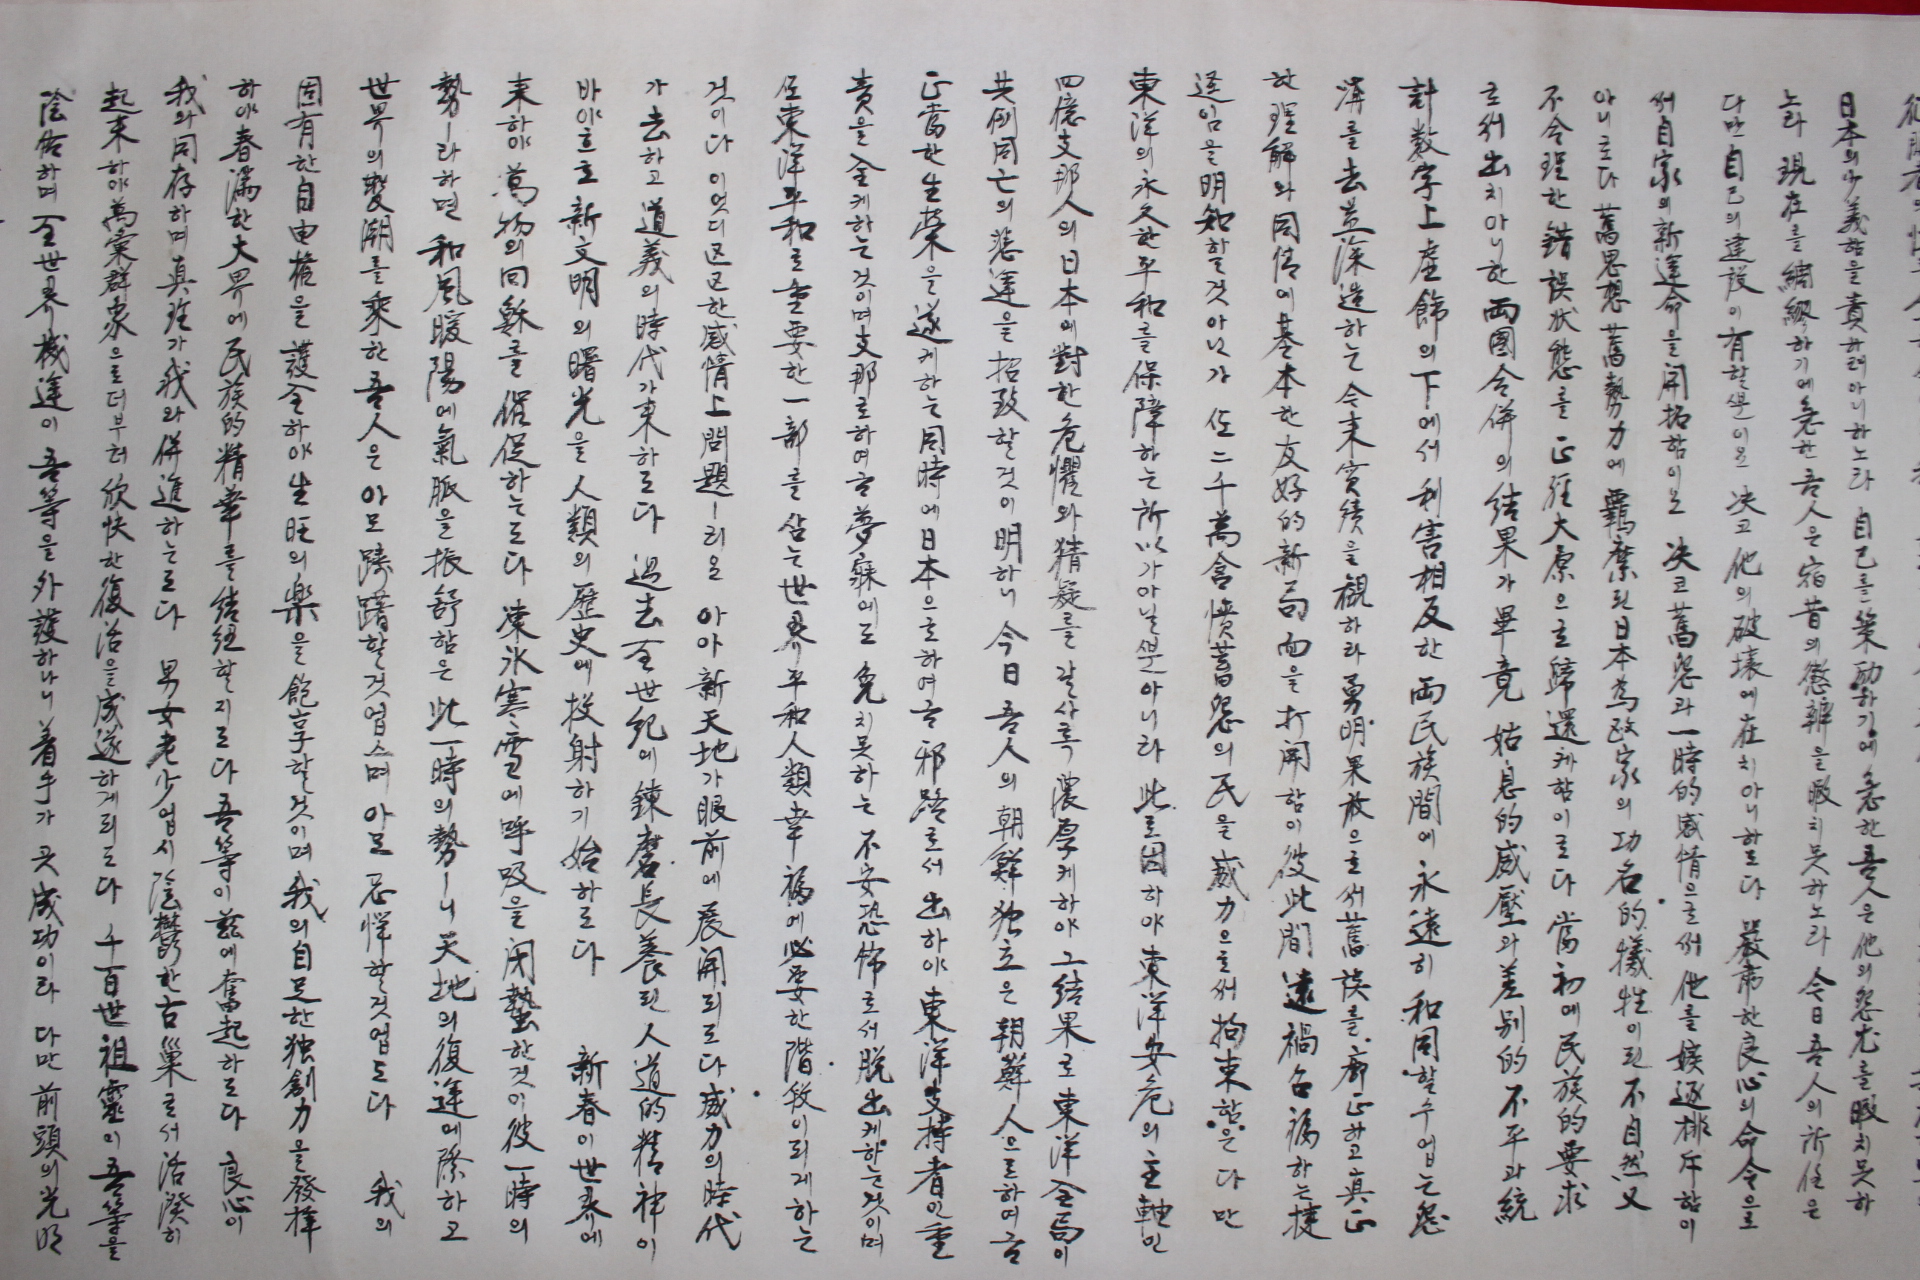 日本의 少義함을 責하려 아니하노라 自己를 策勵하기에 急한 吾人은 他의 怨尤를 暇치 못하
노라 現在를 綢繆하기에 急한 吾人은 宿昔의 懲辨을 暇치 못하노라 今日 吾人의 所任은
다만 自己의 建設이 有할뿐이오 决코 他의 破壞에 在치 아니하도다 嚴肅한 良心의 命令으로
써 自家의 新運命을 開拓함이오 决코 舊怨과 一時的 感情으로써 他를 嫉逐排斥함이
아니로다 舊思想 舊勢力에 羈縻된 日本爲政家의 功名的 犧牲이된 不自然 又
不合理한 錯誤狀態를 正經大原으로 歸還케함이로다 當初에 民族的 要求
로써 出치아니한 両國合併의 結果가 畢竟 姑息的 威壓과 差別的 不平과 統
計數字上 虛飾의 下에서 利害相反한 両民族間에 永遠히 和同할수업는 怨
溝를 去益深造하는 今來實績을 觀하라 勇明果敢으로써 舊誤를 廓正하고 眞正
한 理解와 同情에 基本한 友好的 新局面을 打開함이 彼此間 遠禍召福하는 捷
逕임을 明知할것아닌가 또 二千萬 含憤蓄怨의 民을 威力으로써 拘束함은 다만
東洋의 永久한 平和를 保障하는 所以가 아닐뿐아니라 此로因하야 東洋安危의 主軸인
四億支那人의 日本에對한 危懼와 猜疑를 갈사록 濃厚케하야 그 結果로 東洋全局이
共倒同亡의 悲運을 招致할것이 明하니 今日 吾人의 朝鮮独立은 朝鮮人으로하여금
正當한 生榮을 遂케하는 同時에 日本으로하여금 邪路로서 出하야 東洋支持者인 重
責을 全케하는것이며 支那로하여금 夢寐에도 免치못하는 不安恐怖로서 脫出케하는것이며
또 東洋平和로 重要한 一部를 삼는 世界平和 人類幸福에 必要한 階段이되게하는
것이다 이엇디 区区한 感情上 問題ㅣ리오 아아 新天地가 眼前에 展開되도다 威力의 時代
가 去하고 道義의 時代가 來하도다 過去 全世紀에 鍊磨長養된 人道的 精神이
바야흐로 新文明의 曙光을 人類의 歷史에 投射하기 始하도다 新春이 世界에
來하야 萬物의 回穌를 催促하는도다 凍氷寒雪에 呼吸을 閉蟄한것이 彼一時의
勢ㅣ라하면 和風暖陽에 氣脈을 振舒함은 此一時의 勢ㅣ니 天地의 復運에 際하고
世界의 變潮를 乘한 吾人은 아모 躊躇할것업스며 아모 忌憚할것업도다 我의
固有한 自由權을 護全하야 生旺의 樂을 飽享할것이며 我의 自足한 独創力을 發揮
하야 春滿한 大界에 民族的精華를 結紐할지로다 吾等이 玆에 奮起하도다 良心이
我와 同存하며 眞理가 我와 併進하는도다 男女老少업시 陰鬱한 古巢로서 活潑히
起來하야 萬彙群象으로더부러 欣快한 復活을 成遂하게되도다 千百世 祖靈이 吾等을
陰佑하며 全世界 機運이 吾等을 外護하나니 着手가 곳 成功이라 다만 前頭의 光明